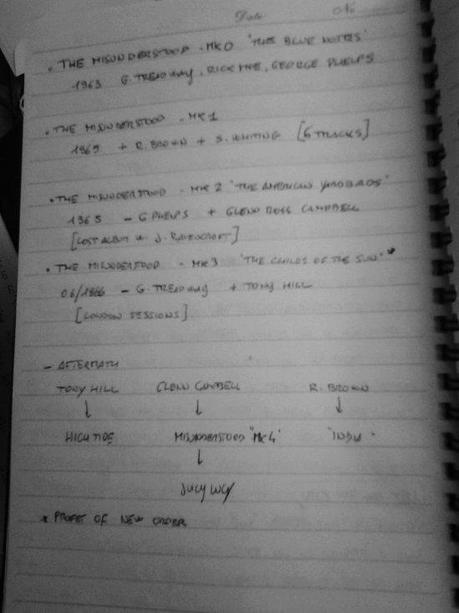 Date No
• THE MISUNDERSTOOD - MK0 "THE BLUE NOTES"
1963 G. TREADWAY, RICK MOE, GEORGE PHELPS
• THE MISUNDERSTOOD - MK1
1965 + R. BROWN + S. WHITING [6 TRACKS]
• THE MISUNDERSTOOD - MK2 "THE AMERICAN YARDBIRDS"
1965 - G. PHELPS + GLENN ROSS CAMPBELL
[LOST ALBUM W. J. RAVENCROFT]
• THE MISUNDERSTOOD - MK3 "THE CHILDS OF THE SUN" *
06/1966 - G. TREADWAY + TONY HILL
[LONDON SESSIONS]
- AFTERMATH
TONY HILL GLENN CAMPBELL R. BROWN
↓ ↓ ↓
HIGH TIDE MISUNDERSTOOD "MK4" "INDIA"
↓
JUICY LUCY
* PROFET OF NEW ORDER